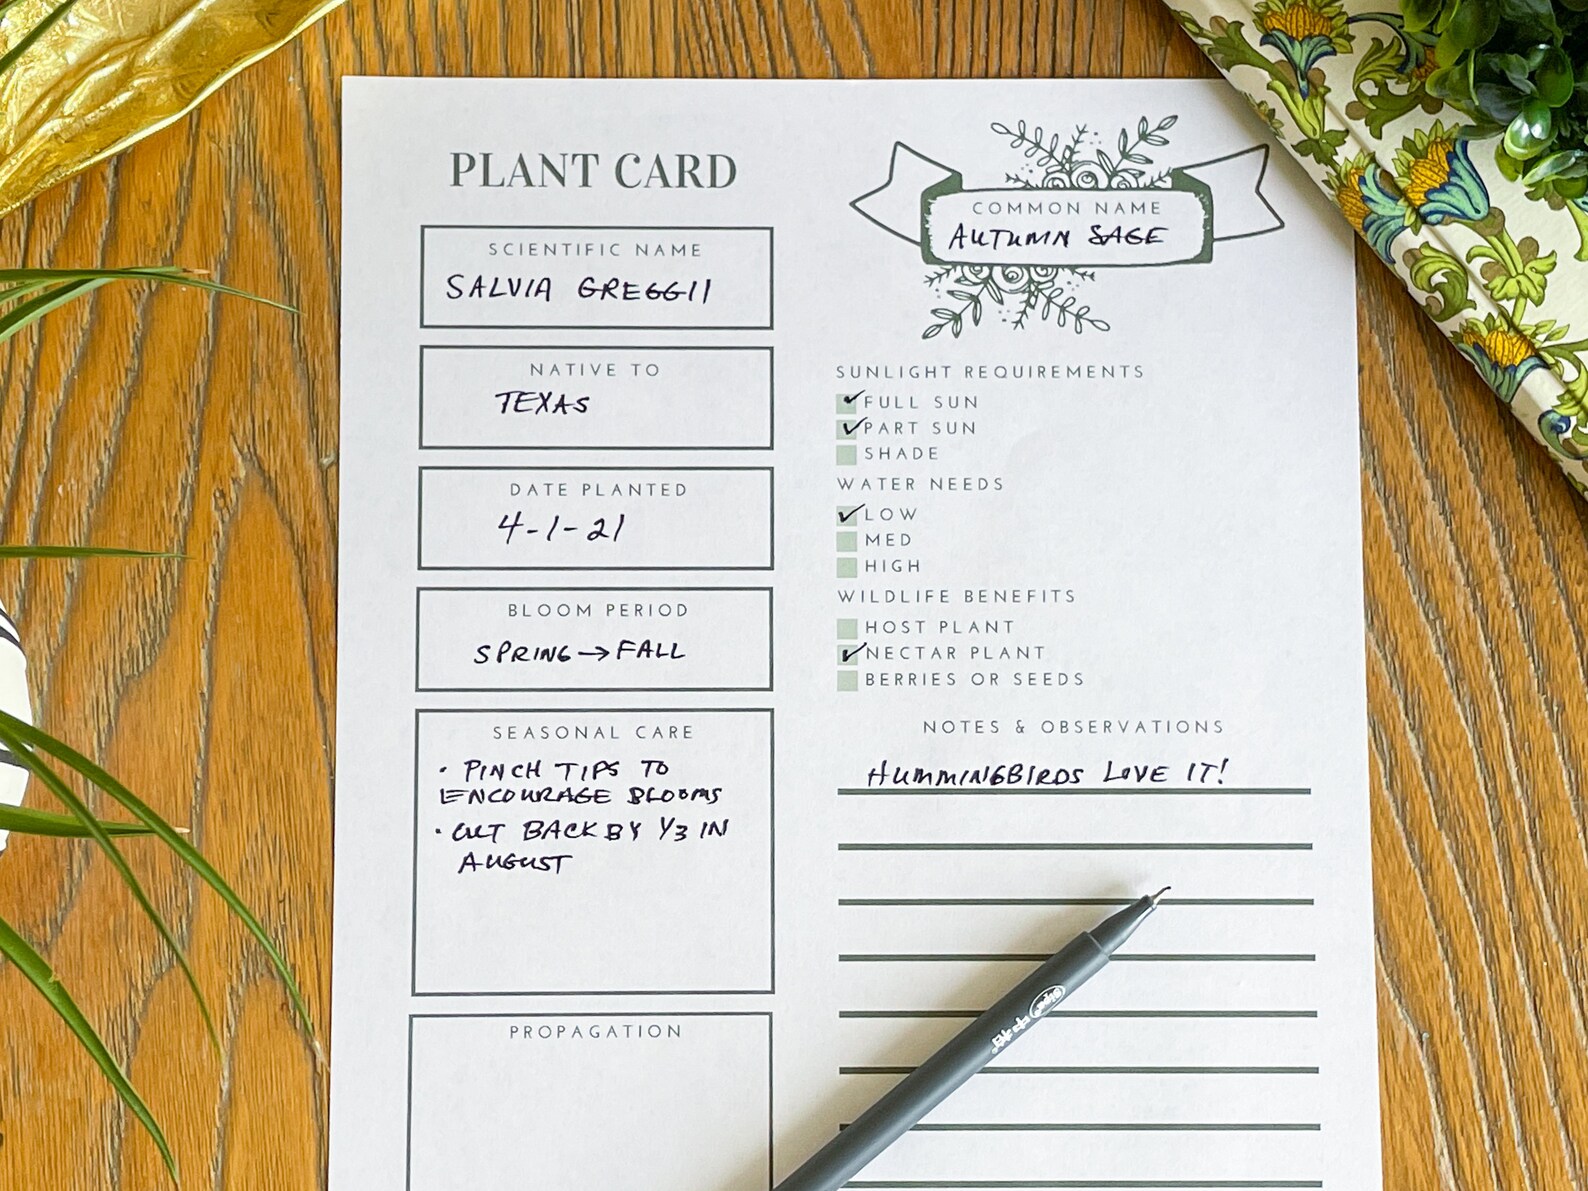 PLANT CARD
SCIENTIFIC NAME
SALVIA GREGGII
NATIVE TO
TEXAS
DATE PLANTED
4-1-21
BLOOM PERIOD
SPRING → FALL
SEASONAL CARE
• PINCH TIPS TO
ENCOURAGE BLOOMS
• CUT BACK BY 1/3 IN
AUGUST
PROPAGATION
COMMON NAME
AUTUMN SAGE
SUNLIGHT REQUIREMENTS
FULL SUN
PART SUN
SHADE
WATER NEEDS
LOW
MED
HIGH
WILDLIFE BENEFITS
HOST PLANT
NECTAR PLANT
BERRIES OR SEEDS
NOTES & OBSERVATIONS
HUMMINGBIRDS LOVE IT!